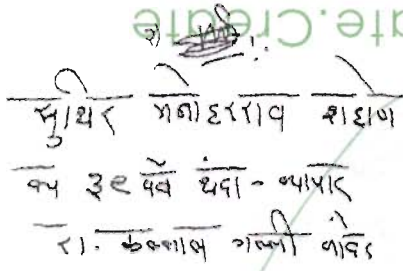 ate.Create
२)
सुधिर मनोहरराव शहाणे
वय ३९ वर्षे धंदा - व्यापार
रा. कल्लाळ गल्ली नांदेड